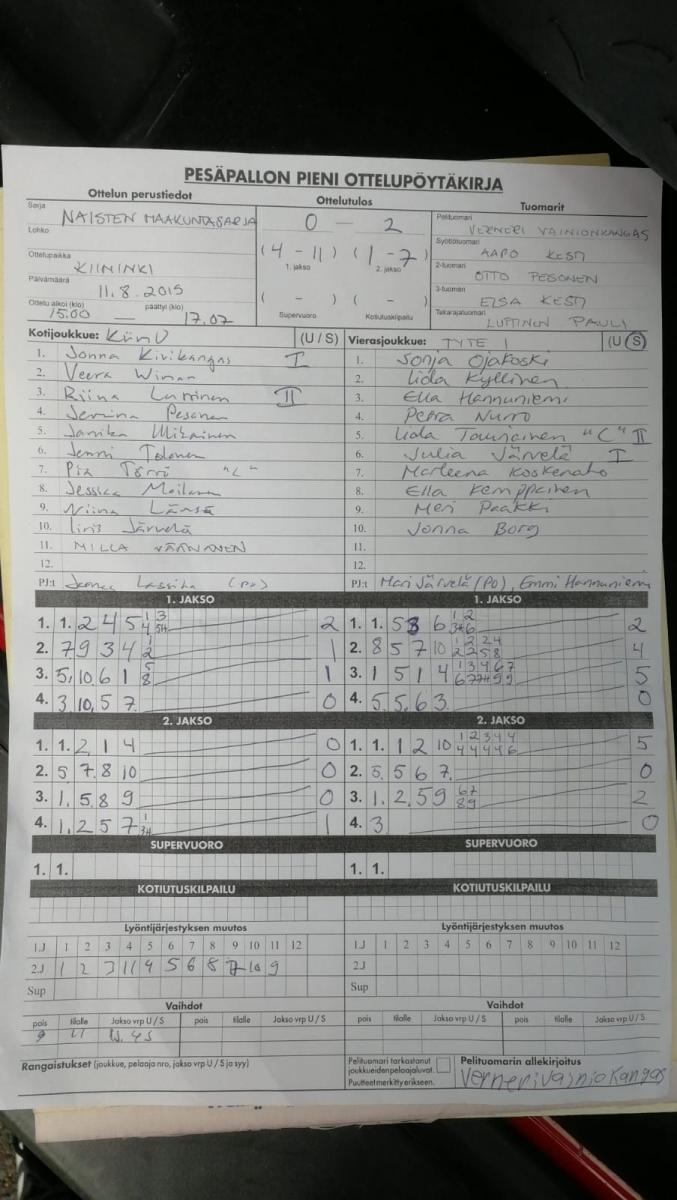 PESÄPALLON PIENI OTTELUPÖYTÄKIRJA
Ottelun perustiedot
Ottelutulos
Tuomarit
Sarja
NAISTEN MAAKUNTASARJA
0 – 2
Pelituomari
VERNERI VAINIONKANGAS
Lohko
(4 – 11) (1 – 7)
1. jakso 2. jakso
Syöttötuomari
AAPO KESTI
Ottelupaikka
KIIMINKI
2-tuomari
OTTO PESONEN
Päivämäärä
11.8.2015
( – ) ( – )
Supervuoro Kotiutuskilpailu
3-tuomari
ELSA KESTI
Ottelu alkoi (klo) päättyi (klo)
15.00 — 17.07
Takarajatuomari
LUTTINEN PAULI
Kotijoukkue: KiinU (U / S)
Vierasjoukkue: TYTE 1 (U / S)
1. Jonna Kivikangas I
2. Veera
3. Riina II
4. Pesonen
5. Mikainen
6. Jenni Tolonen
7. Pia Törrö "C"
8. Jessica Moilanen
9. Niina Länsä
10. Iiris Järvelä
11. MILLA VÄÄNÄNEN
12.
PJ:t Lassila (PO)
1. Sonja Ojakoski
2. Iida Kyllinen
3. Ella Hannuniemi
4. Petra Nurro
5. Iida "C" II
6. Julia Järvelä I
7. Marleena Koskenaho
8. Ella Kemppainen
9. Meri Paakki
10. Jonna Borg
11.
12.
PJ:t Mari Järvelä (PO), Emmi Hannuniemi
1. JAKSO 1. JAKSO
1. 1. 2 4 5 2
2. 7 9 3 4 1
3. 5, 10 6 1 8 1
4. 3 10, 5 7 0
1. 1. 5 6 2
2. 8 5 7 10 4
3. 1 5 1 4 5
4. 5. 5. 6 3. 0
2. JAKSO 2. JAKSO
1. 1. 2 1 4 0
2. 5 7. 8 10 0
3. 1. 5 8 9 0
4. 1. 2 5 7 1
1. 1. 1 2 10 5
2. 5. 5 6 7. 0
3. 1. 2. 5 9 2
4. 3 0
SUPERVUORO SUPERVUORO
1. 1. 1. 1.
KOTIUTUSKILPAILU KOTIUTUSKILPAILU
Lyöntijärjestyksen muutos Lyöntijärjestyksen muutos
1.J 1 2 3 4 5 6 7 8 9 10 11 12
2.J 1 2 3 11 4 5 6 8 7 10 9
Sup
1.J 1 2 3 4 5 6 7 8 9 10 11 12
2.J
Sup
Vaihdot Vaihdot
pois tilalle Jakso vrp U / S pois tilalle Jakso vrp U / S
9 11
pois tilalle Jakso vrp U / S pois tilalle Jakso vrp U / S
Rangaistukset (joukkue, pelaaja nro, jakso vrp U / S ja syy)
Pelituomari tarkastanut
joukkueiden pelaajaluvat.
Puutteet merkitty erikseen.
Pelituomarin allekirjoitus
Verneri Vainiokangas